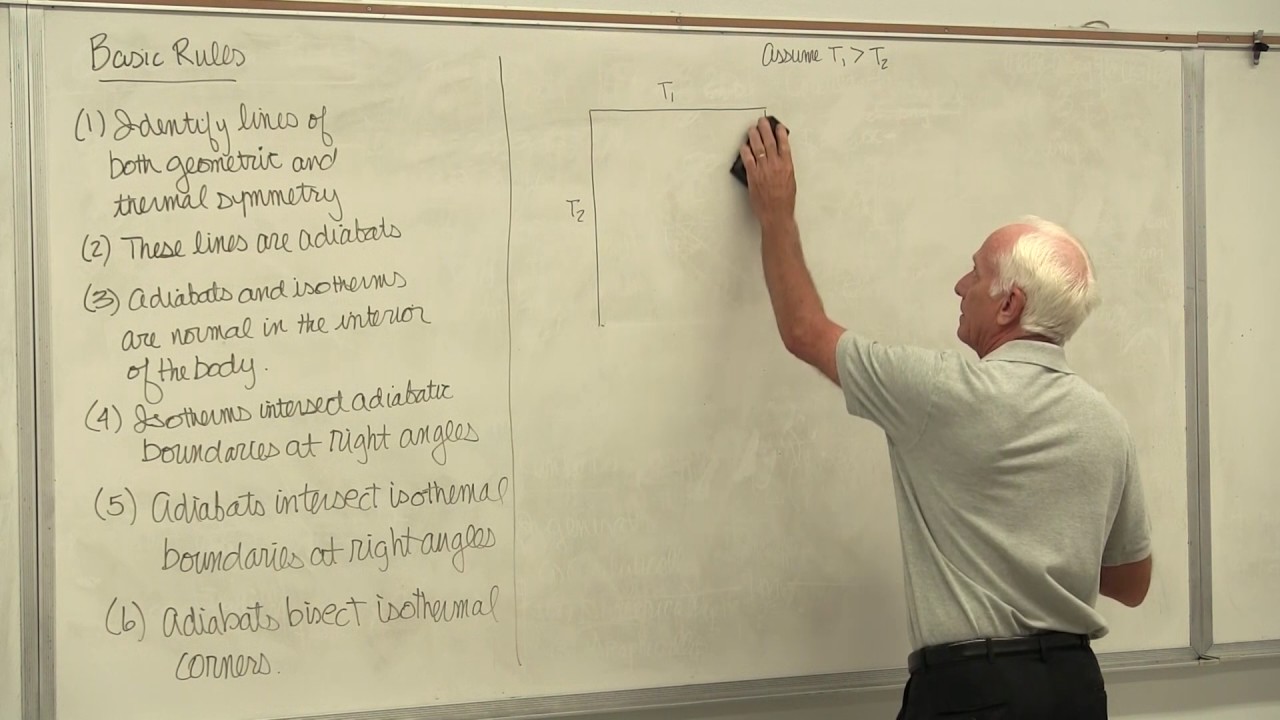 Basic Rules
(1) Identify lines of
both geometric and
thermal symmetry
(2) These lines are adiabats
(3) Adiabats and isotherms
are normal in the interior
of the body.
(4) Isotherms intersect adiabatic
boundaries at right angles
(5) Adiabats intersect isothemal
boundaries at right angles
(6) Adiabats bisect isothermal
corners.
Assume T₁ > T₂
T₁
T₂